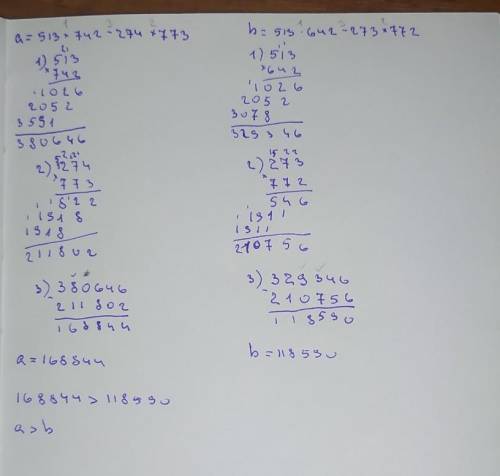 1 3 2
a = 513 × 742 - 274 × 773
21
1) 513
× 742
1026
2052
3591
380646
2) 274
× 773
822
1918
1918
211802
3) 380646
- 211802
168844
a = 168844
168844 > 118590
a > b
1 3 2
b = 513 · 642 - 273 × 772
1) 513
× 642
1026
2052
3078
329346
2) 273
× 772
546
1911
1911
210756
3) 329346
- 210756
118590
b = 118590